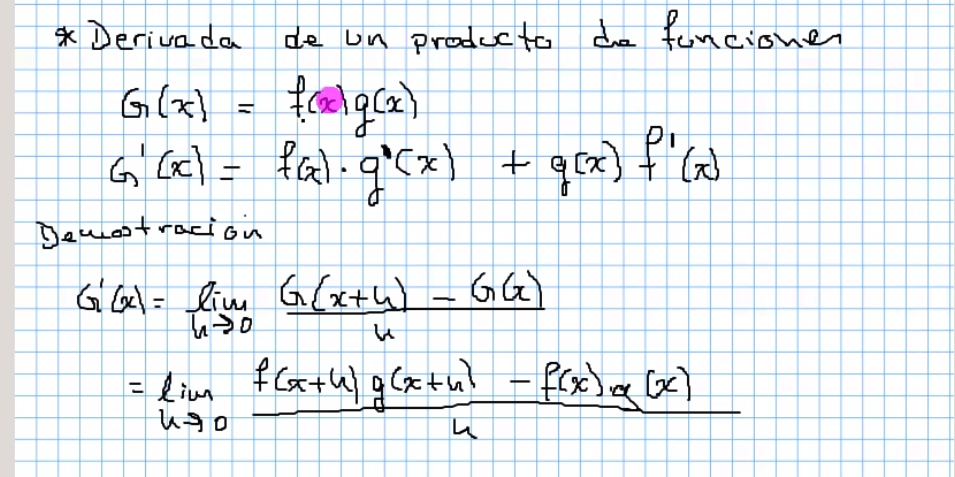 * Derivada de un producto de funciones
G(x) = f(x)g(x)
G'(x) = f(x)·g'(x) + g(x) f'(x)
Demostración
G'(x) = lim h→0 G(x+h) - G(x) / h
= lim h→0 f(x+h) g(x+h) - f(x).g(x) / h